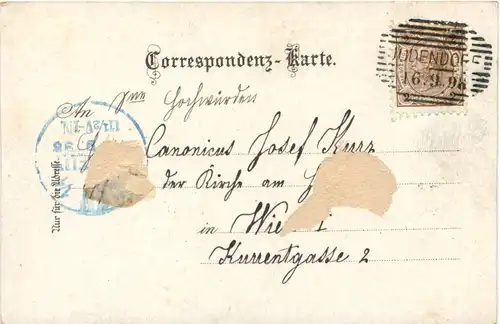 Correspondenz-Karte.
JUDENDORF
16.9.98
An Ihre Hochwürden
Canonicus Josef Kurz
der Kirche am
in Wie
Kurrentgasse 2
Nur für die Adresse.